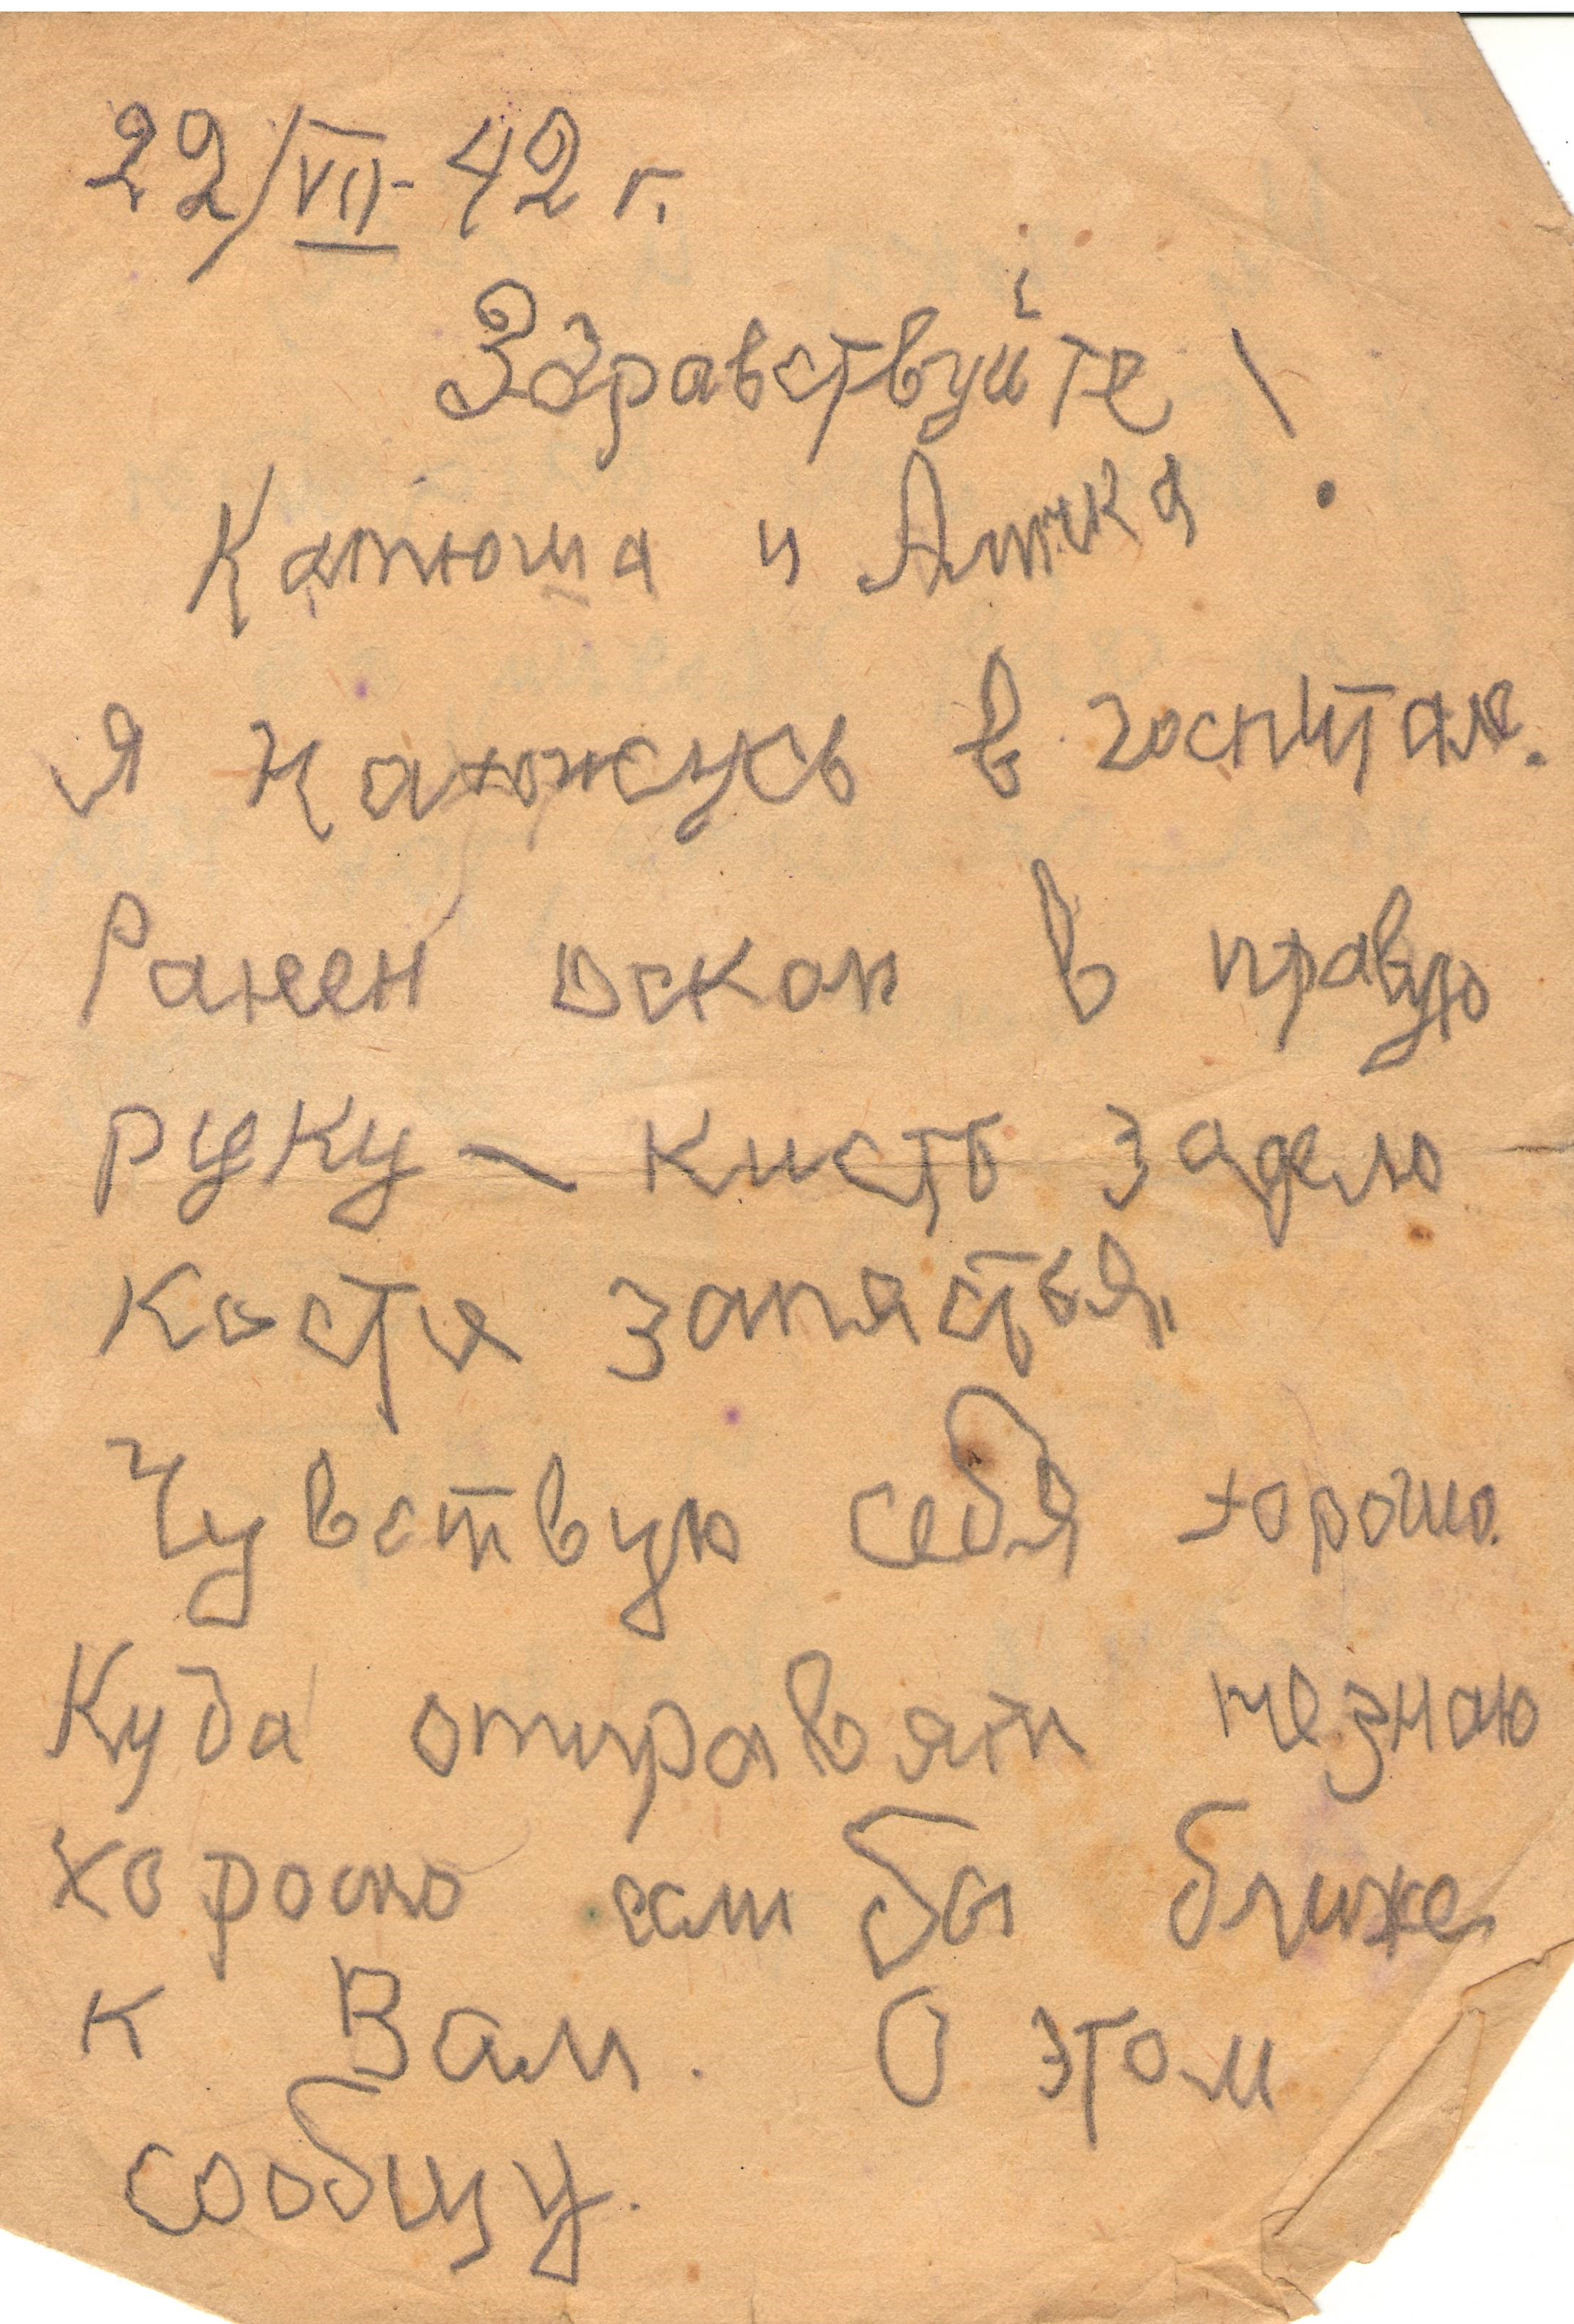 22/VII-42 г.
Здравствуйте!
Катюша и Алечка
Я нахожусь в госпитале.
Ранен оскол в правую
руку - кисть задело
кости запястья.
Чувствую себя хорошо.
Куда отправят незнаю
хорошо если бы ближе
к Вам. О этом
сообщу.